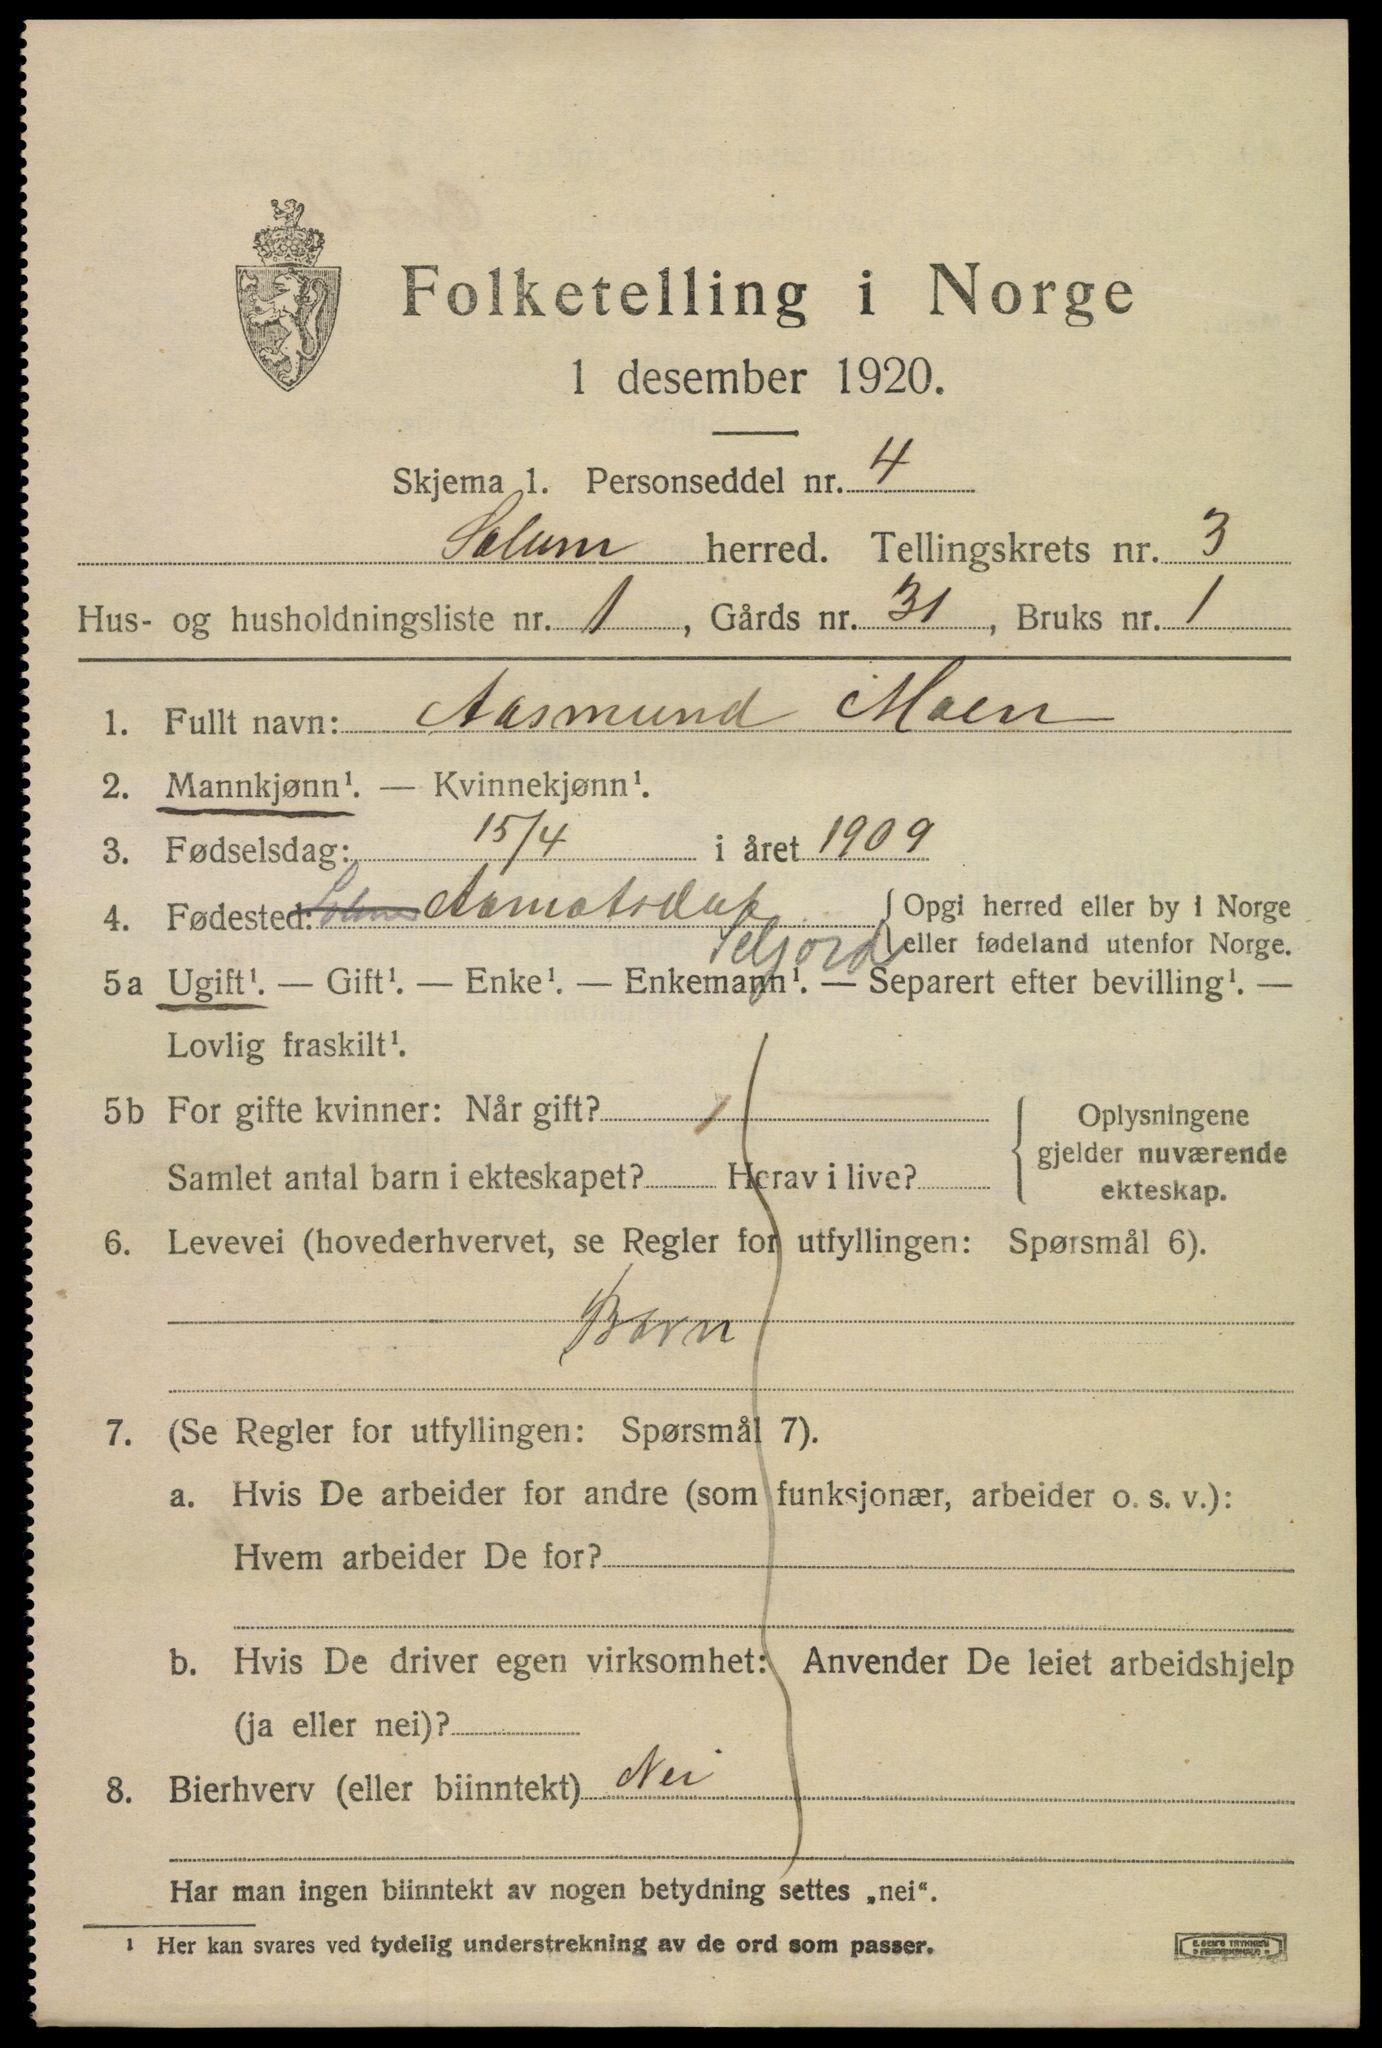 Folketelling i Norge
1 desember 1920.
Skjema 1. Personseddel nr. 4
Solum herred. Tellingskrets nr. 3
Hus- og husholdningsliste nr. 1, Gårds nr. 31, Bruks nr. 1
1. Fullt navn: Aasmund Moen
2. Mannkjønn¹. — Kvinnekjønn¹.
3. Fødselsdag: 15/4 i året 1909
4. Fødested: Aamotsdal { Opgi herred eller by i Norge
Seljord eller fødeland utenfor Norge.
5a Ugift¹. — Gift¹. — Enke¹. — Enkemann¹. — Separert efter bevilling¹. —
Lovlig fraskilt¹.
5b For gifte kvinner: Når gift?
Samlet antal barn i ekteskapet? Herav i live?
{ Oplysningene
gjelder nuværende
ekteskap.
6. Levevei (hovederhvervet, se Regler for utfyllingen: Spørsmål 6).
Barn
7. (Se Regler for utfyllingen: Spørsmål 7).
a. Hvis De arbeider for andre (som funksjonær, arbeider o. s. v.):
Hvem arbeider De for?
b. Hvis De driver egen virksomhet: Anvender De leiet arbeidshjelp
(ja eller nei)?
8. Bierhverv (eller biinntekt) Nei
Har man ingen biinntekt av nogen betydning settes „nei“.
¹ Her kan svares ved tydelig understrekning av de ord som passer.